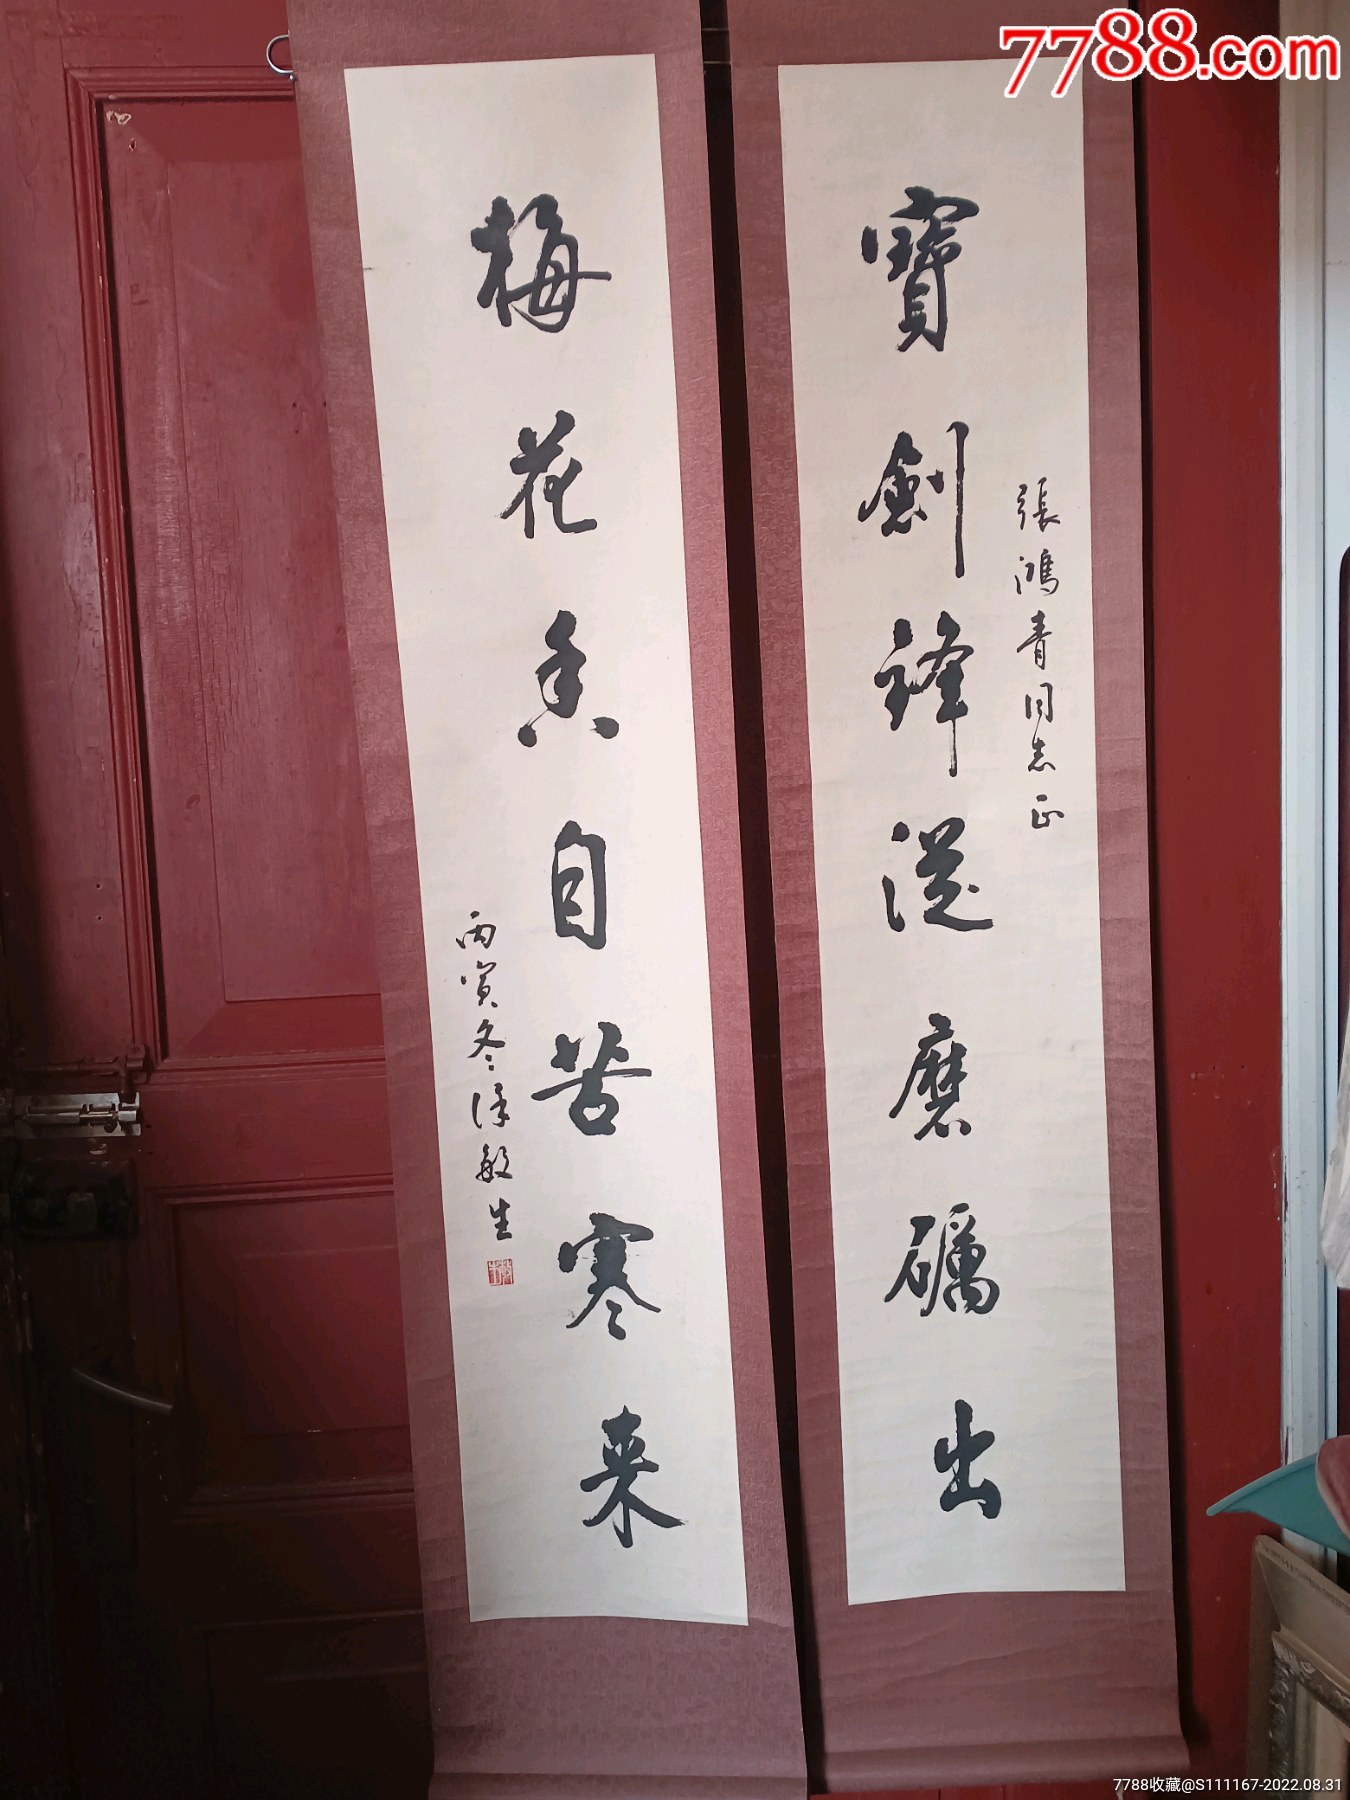 7788.com
寶劍鋒從磨礪出
張鴻青同志正
梅花香自苦寒来
丙寅冬 敏生
7788收藏@S111167-2022.08.31